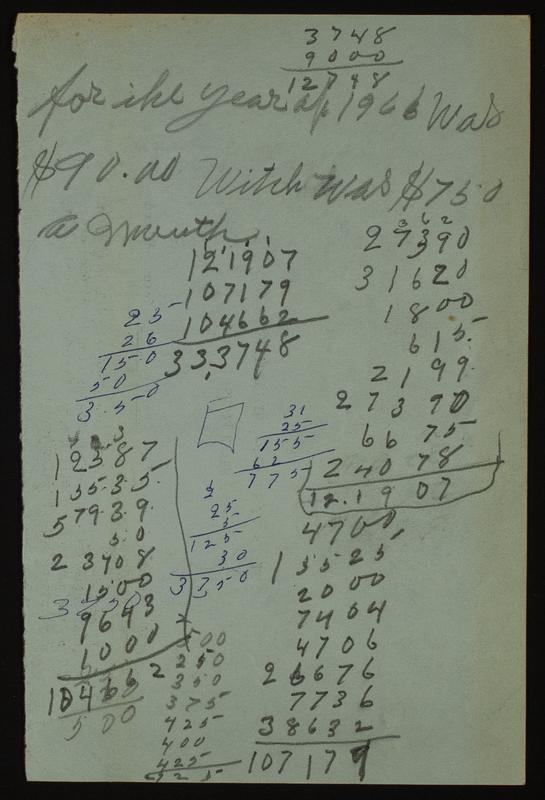 3748
9000
12748
for the year of 1966 Was
$90.00 Witch was $750
a Mounth
121907
107179
104662
333748
25
26
150
50
3.50
27390
31620
1800
615
2199
27390
6675
24078
12.1907
31
25
155
62
775
2
25
5
125
30
3350
12387
13535
57939
50
23708
1500
9643
1000
10466 2
500
500
250
350
375
425
400
425
4700
13525
2000
7404
4706
26676
7736
38632
107179